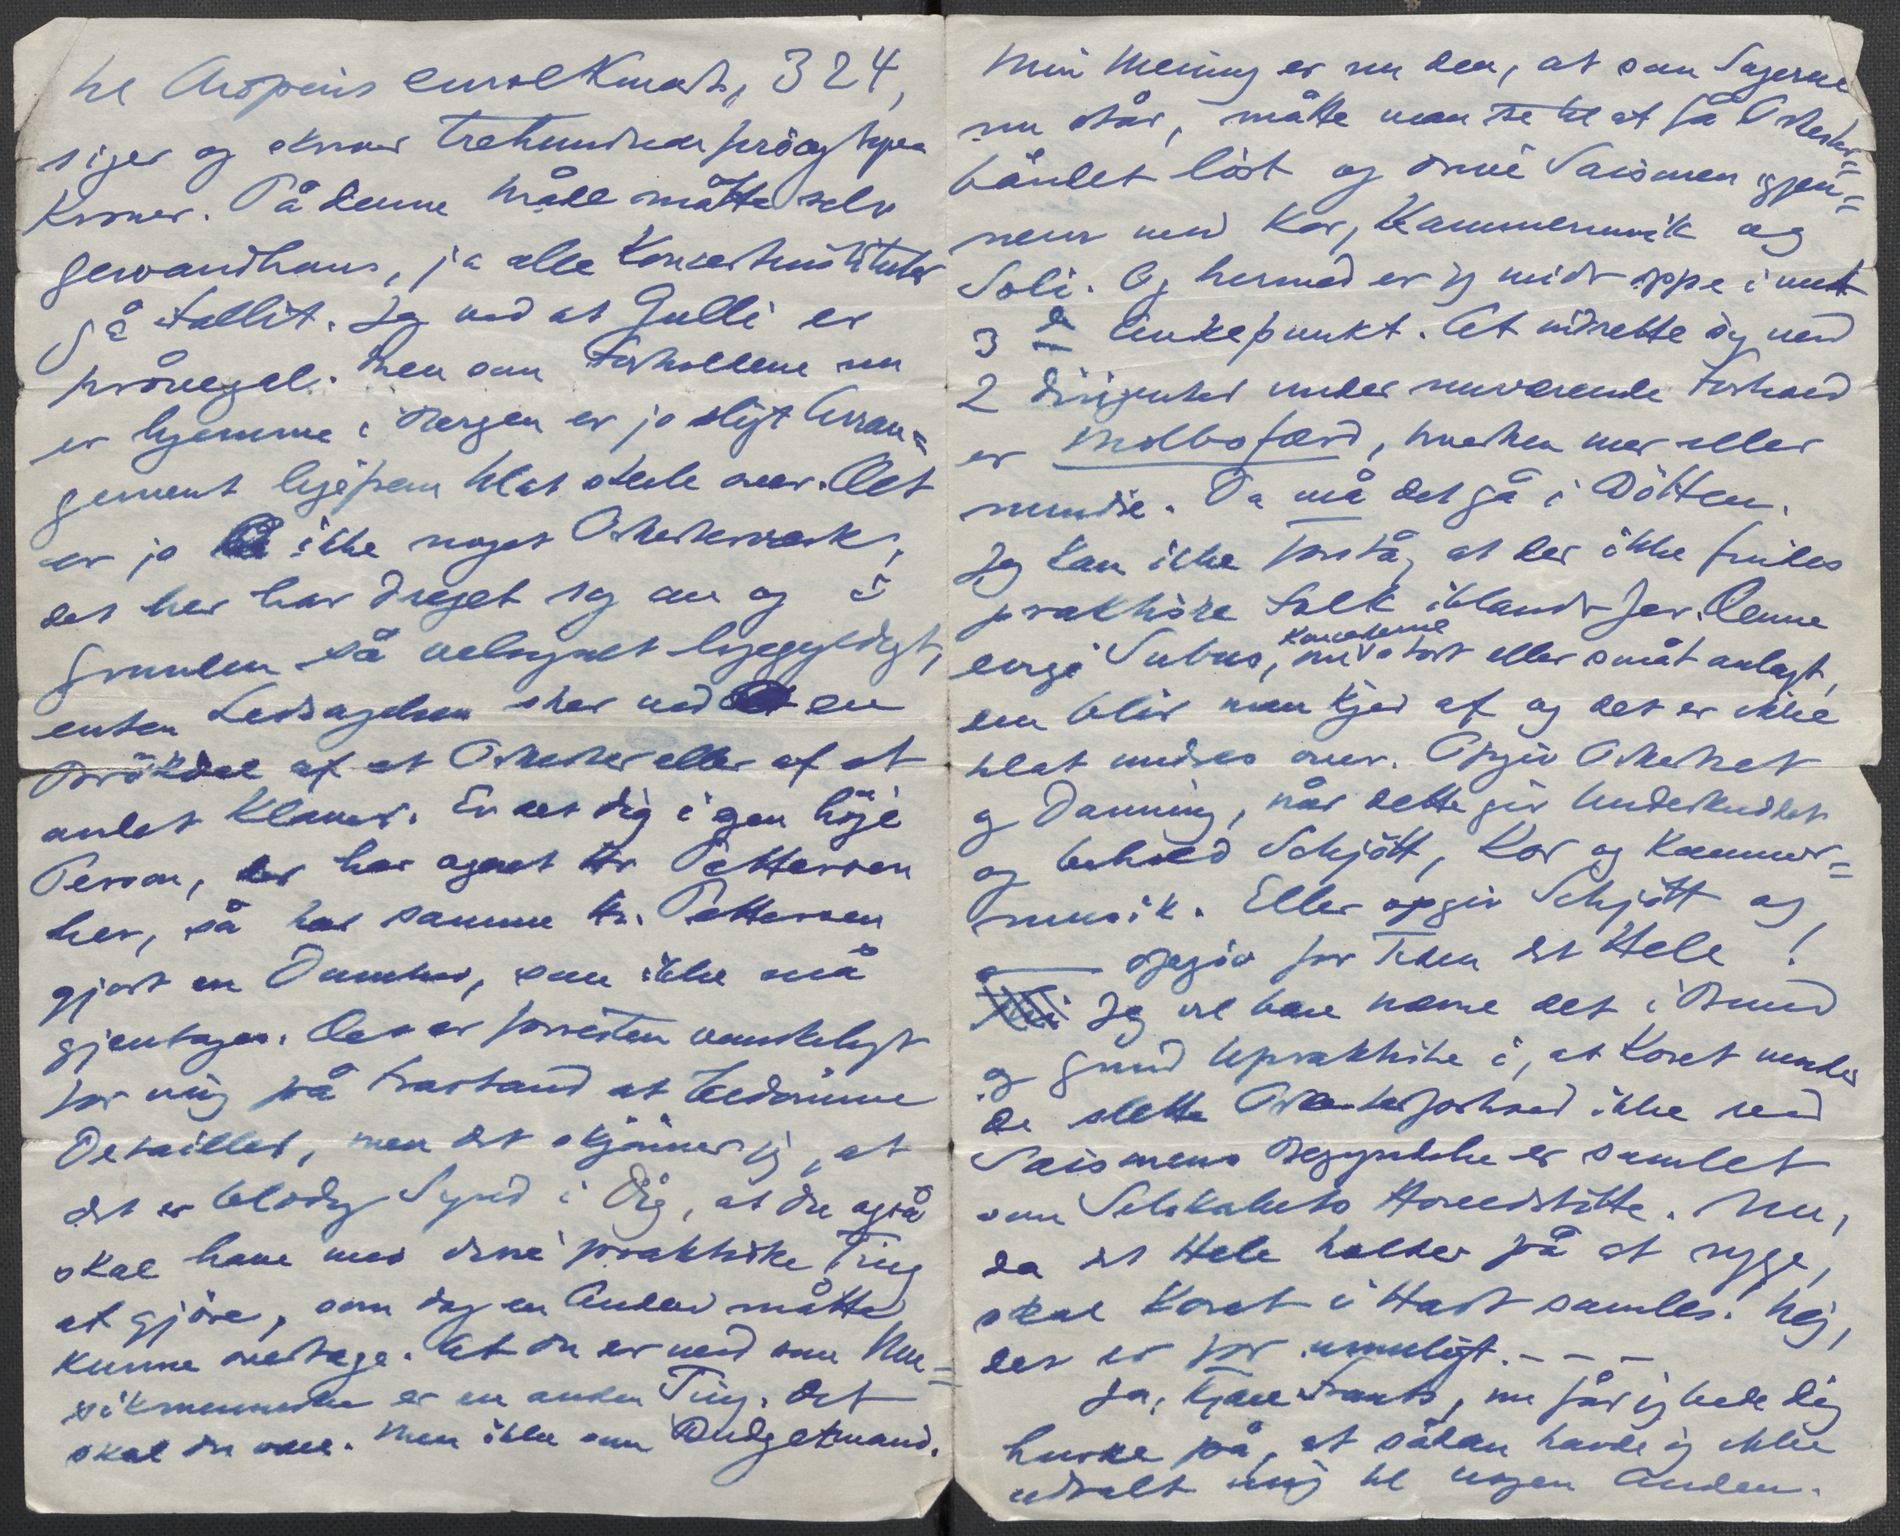 til Chopins emol Konsert, 324,
siger og skriver trehundrede firogtyve
Kroner. På denne Måde måtte selv
Gewandhaus, ja alle Koncertinstituter
gå fallit. Jeg ved at Gulli er
prånegal. Men som Forholdene nu
er hjemme i Bergen er jo sligt Arran=
gement ligefrem til at skrele over. Det
er jo ikke noget Orkesterværk,
det her har dreiet sig om og i
Grunden så velsignet ligegyldigt,
enten Ledsagelsen sker ved en
Brökdel af et Orkester eller af et
andet Klaver. Er det dig i egen höje
Person, der har ageret Hr Pettersen
her, så har samme Hr. Pettersen
gjort en Dumhed, som ikke må
gjentages. Det er forresten vanskeligt
for mig på Frastand at bedömme
Detailler, men det skjönner jeg, at
det er blodig Synd i Dig, at du også
skal have med disse praktiske Ting
at gjöre, som dog en Anden måtte
kunne overtage. At du er med som Mu=
sikmenneske er en anden Ting. Det
skal du være. Men ikke som Budgetmand.
Min Mening er nu den, at som Sagerne
nu står, måtte man se til at få Orkester=
båndet löst og drive Saisonen igjen=
nem med Kor, Kammermusik og
Soli. Og hermed er jeg midt oppe i mit
3 die Ankepunkt. At indrette sig med
2 Dirigenter under nuværende Forhold
er Molbofærd, hverken mer eller
mindre. Da må det gå i Dötten.
Jeg kan ikke forstå, at der ikke findes
praktiske Folk iblandt Jer. Denne
evige Subus, Koncerterne nu stort eller småt anlagt,
den blir man kjed af og det er ikke
til at undres over. Opgiv Orkestret
og Danning, når dette gir Underskuddet
og behold Schjött, Kor og Kammer=
musik. Eller opgiv Schjött og
opgiv for Tiden det Hele!
Jeg vil bare nævne det i Bund
og Grund Upraktiske i, at Koret under
de slette Orkesterforhold ikke ved
Saisonens Begyndelse er samlet
som Selskabets Hovedstötte. Nu,
da det Hele holder på at ryge,
skal Koret i Hast samles. Nej,
det er for umuligt. - - -
Ja, kjære Frants, nu får jeg bede dig
huske på, at sådan havde jeg ikke
udtalt mig til nogen Anden.